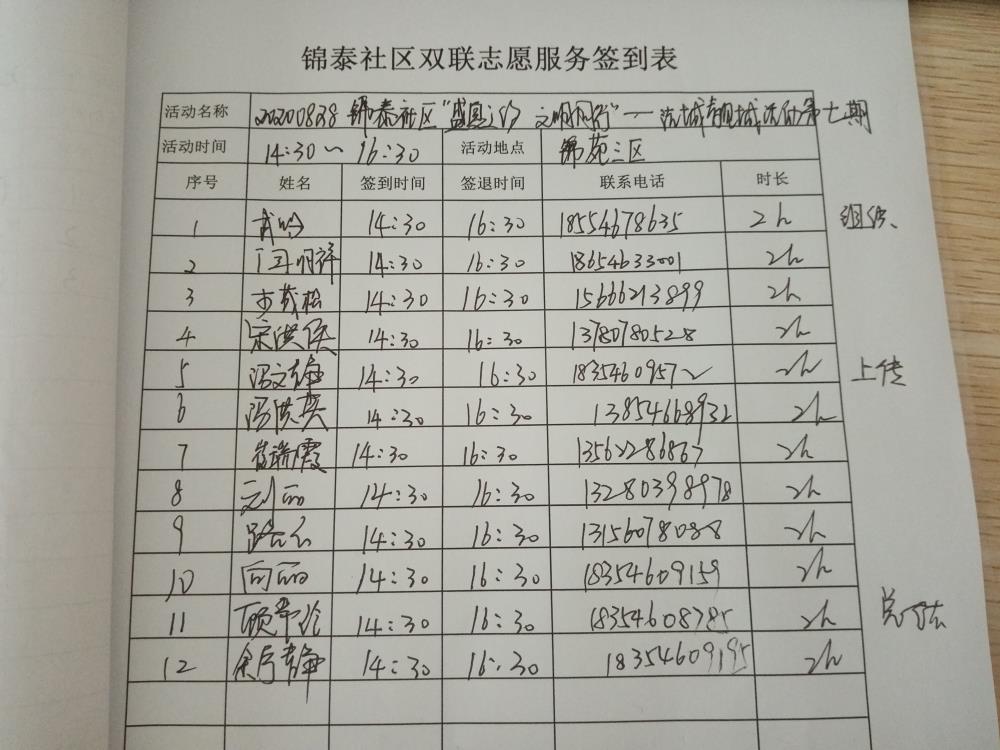 锦泰社区双联志愿服务签到表
活动名称 20200828 锦泰社区"盛夏之约 文明同行"一 第七期
活动时间 14:30～16:30 活动地点 锦苑三区
序号 姓名 签到时间 签退时间 联系电话 时长
1 14:30 16:30 18554678635 2h 组织、
2 闫明祥 14:30 16:30 18654633001 2h
3 李茂松 14:30 16:30 15666213899 2h
4 宋洪侠 14:30 16:30 13780780528 2h
5 冯文静 14:30 16:30 1835460957 2h 上传
6 冯洪英 14:30 16:30 13854668932 2h
7 崔瑞霞 14:30 16:30 13562286867 2h
8 刘丽 14:30 16:30 13280398978 2h
9 14:30 16:30 13156078088 2h
10 向丽 14:30 16:30 18354609159 2h
11 14:30 16:30 18354608785 2h
12 14:30 16:30 18354609195 2h